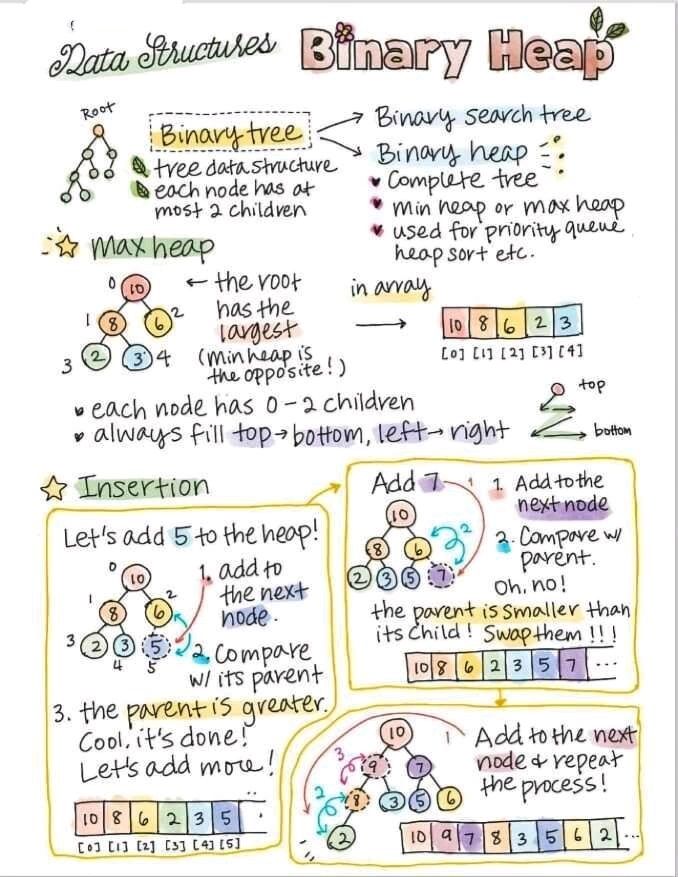 Data Structures Binary Heap
Root
Binary tree
tree data structure
each node has at
most 2 children
Binary search tree
Binary heap
Complete tree
min heap or max heap
used for priority queue,
heap sort etc.
Max heap
0 10
1 8 6 2
3 2 3 4
← the root
has the
largest
(min heap is
the opposite!)
in array
10 8 6 2 3
[0] [1] [2] [3] [4]
each node has 0-2 children
always fill top→bottom, left→right
top
bottom
Insertion
Let's add 5 to the heap!
0 10
1 8 6 2
3 2 3 5
4 5
1. add to
the next
node.
2. Compare
w/ its parent
3. the parent is greater.
Cool, it's done!
Let's add more!
10 8 6 2 3 5
[0] [1] [2] [3] [4] [5]
Add 7
1
10
8 6 2
2 3 5 7
1. Add to the
next node
2. Compare w/
parent.
Oh, no!
the parent is smaller than
its child! Swap them!!!
10 8 6 2 3 5 7 ...
10 1
3 9 7
2 8 3 5 6
2
Add to the next
node & repeat
the process!
10 9 7 8 3 5 6 2 ...